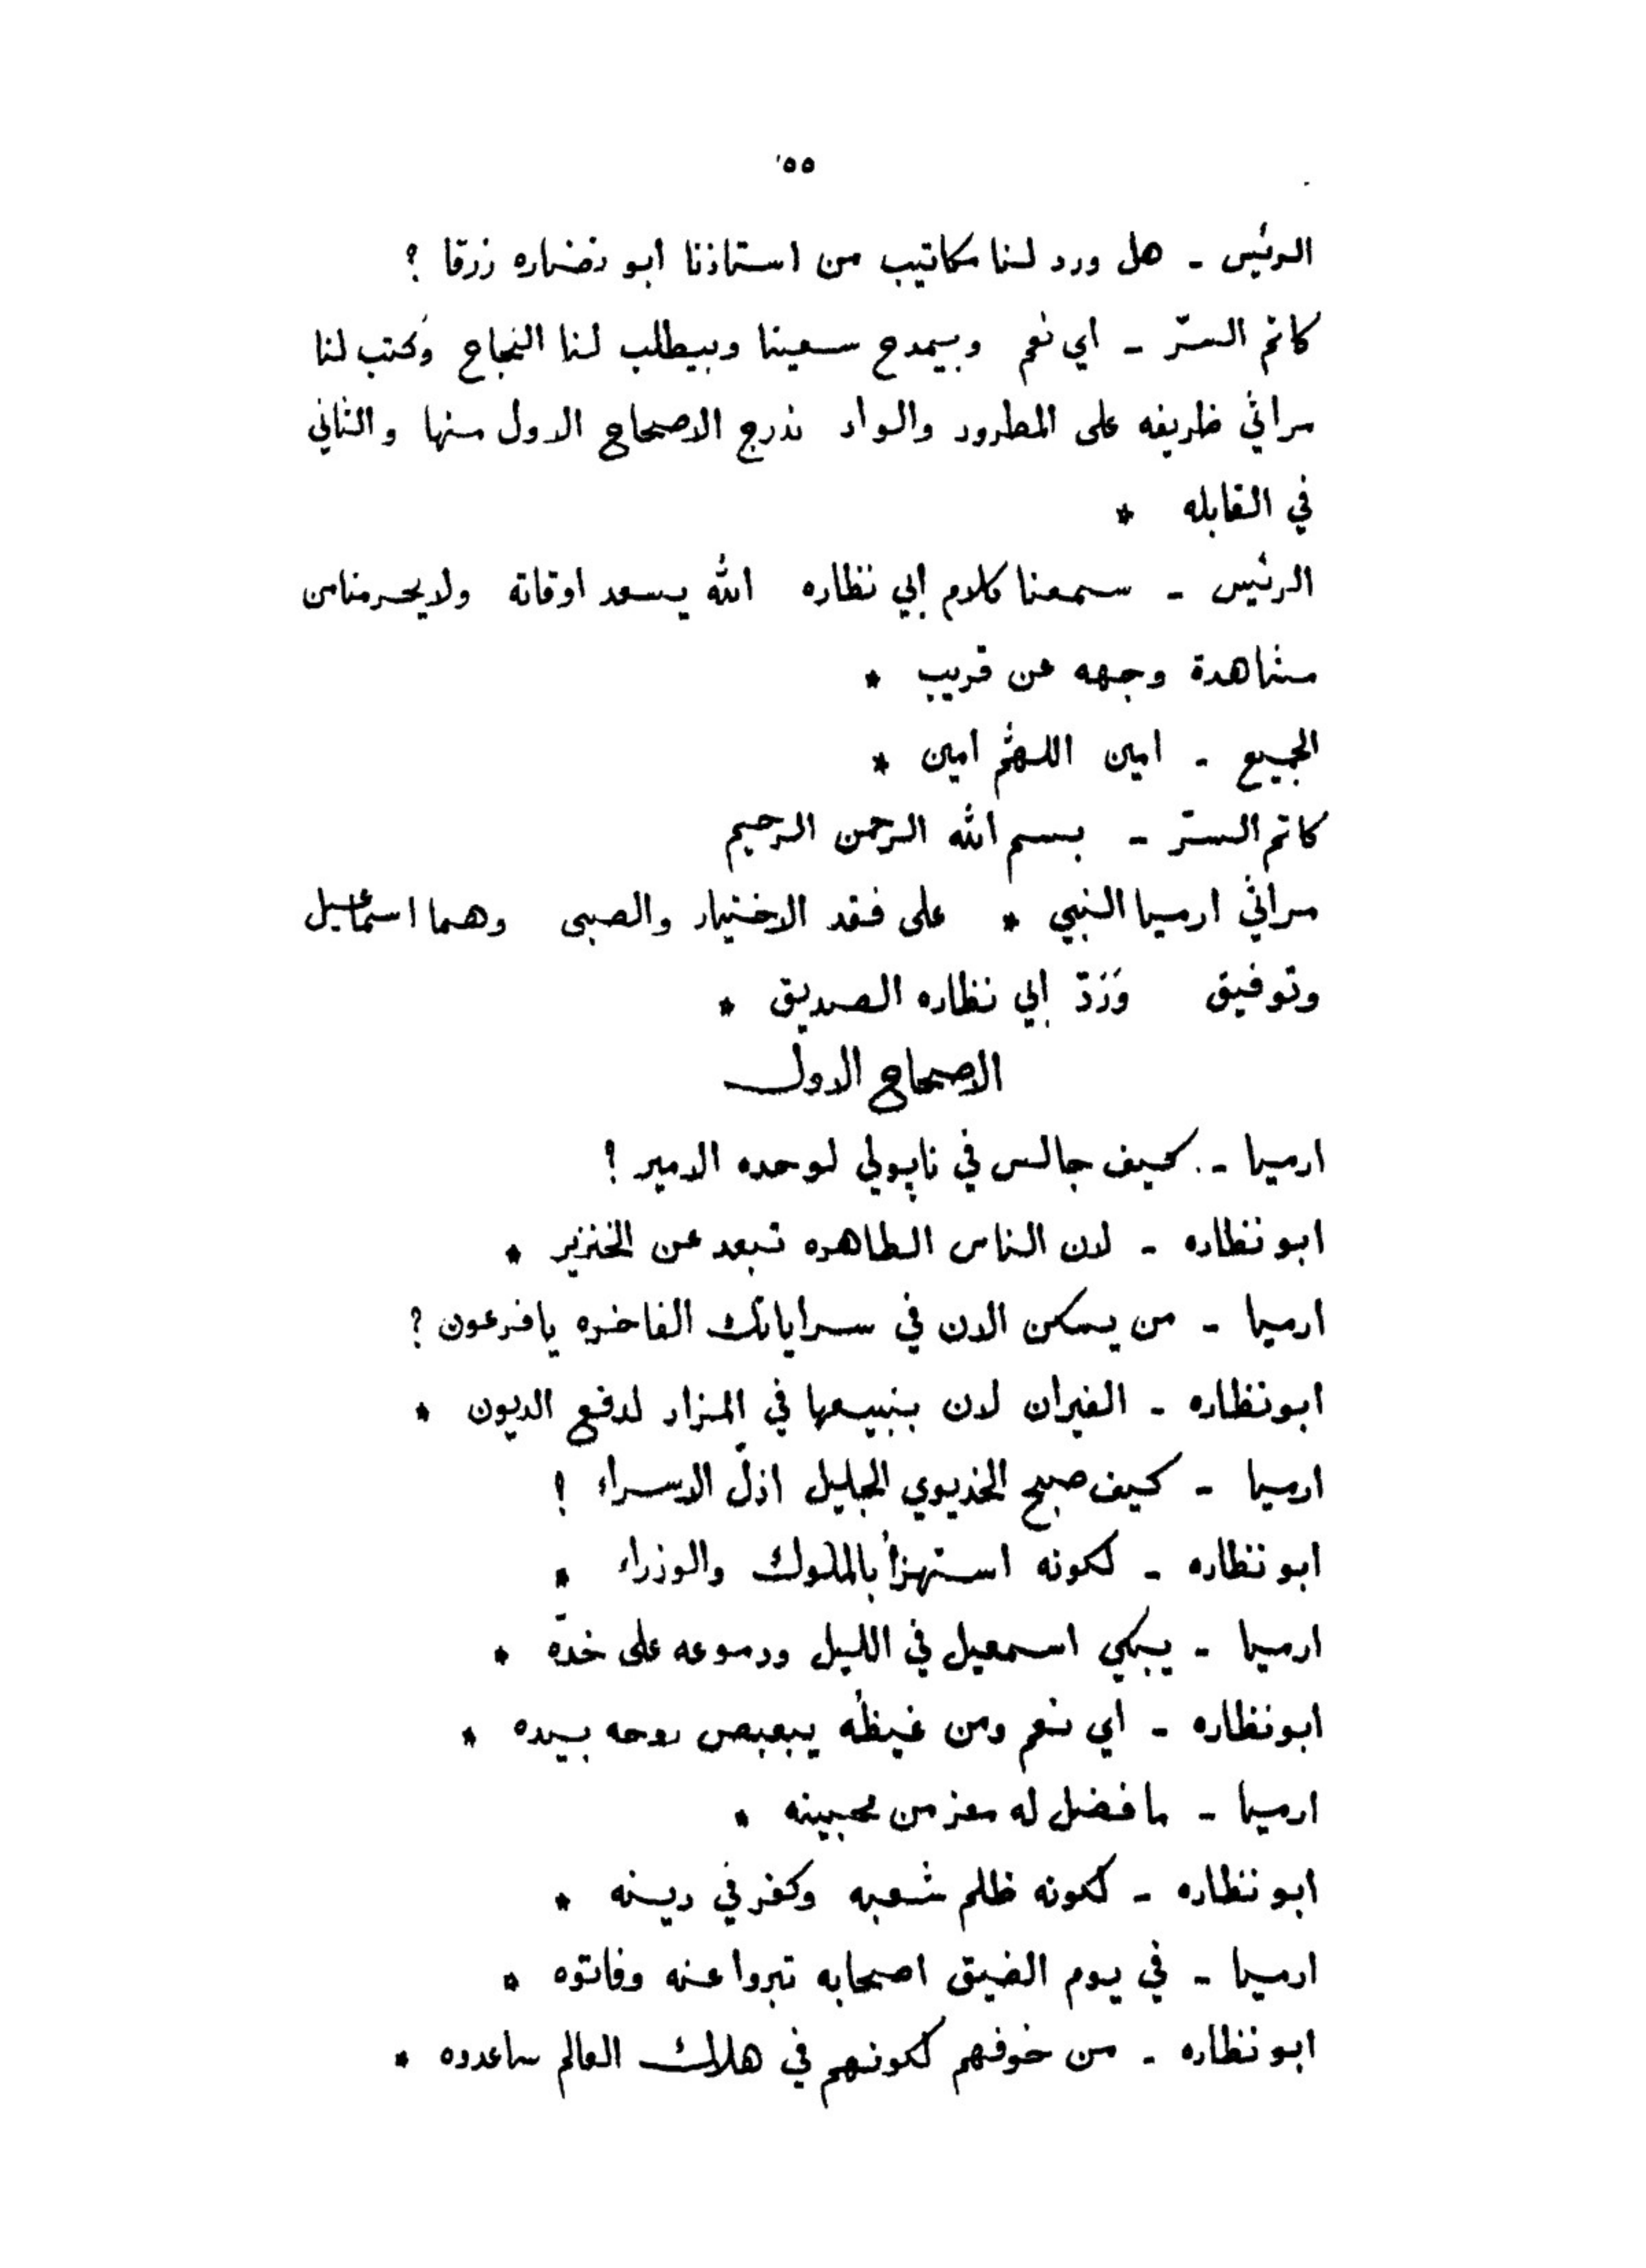 ٥٥
الرئيس - هل ورد لنا مكاتيب من استاذنا ابو نضاره زرقا ؟
كاتم السرّ - اي نعم وبيمدح سعينا وبيطلب لنا النجاح وكتب لنا
مراثي ظريفه على المطرود والواد ندرج الاصحاح الاول منها والثاني
في القابله *
الرئيس - سمعنا كلام ابي نظاره الله يسعد اوقاته ولا يحرمنا من
مشاهدة وجهه عن قريب *
الجميع - امين اللهمّ امين *
كاتم السرّ - بسم الله الرحمن الرحيم
مراثي ارميا النبي * على فقد الاختيار والصبى وهما اسماعيل
وتوفيق وَرَدّ ابي نظاره الصديق *
الاصحاح الاول
ارميا - كيف جالس في ناپولي لوحده الامير !
ابو نظاره - لان الناس الطاهره تبعد عن الخنزير *
ارميا - من يسكن الان في سراياتك الفاخره يا فرعون ؟
ابو نظاره - الفيران لان بنبيعها في المزاد لدفع الديون *
ارميا - كيف صبح الخديوي الجليل اذلّ الاسراء !
ابو نظاره - لكونه استهزأ بالملوك والوزراء *
ارميا - يبكي اسمعيل في الليل ودموعه على خدّه *
ابو نظاره - اي نعم ومن غيظه يبعبص روحه بيده *
ارميا - ما فضل له معز من محبينه *
ابو نظاره - لكونه ظلم شعبه وكفر في دينه *
ارميا - في يوم الضيق اصحابه تبروا عنه وفاتوه *
ابو نظاره - من خوفهم لكونهم في هلاك العالم ساعدوه *